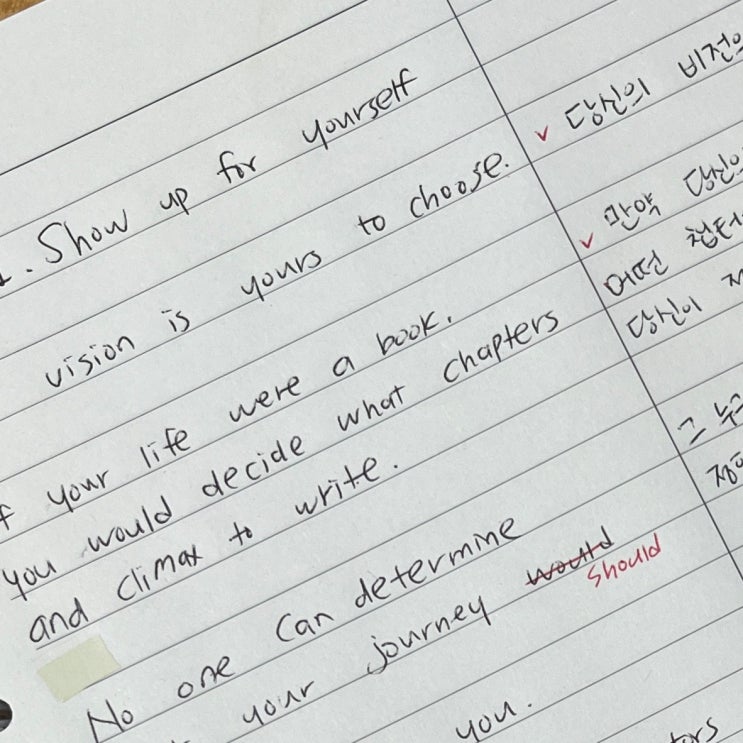 1. Show up for yourself
vision is yours to choose.
If your life were a book.
you would decide what chapters
and climax to write.
No one can determine
your journey would should
you.
✓ 당신의 비전의
✓ 만약 당신의
어떤 챕터
당신이
그 누구